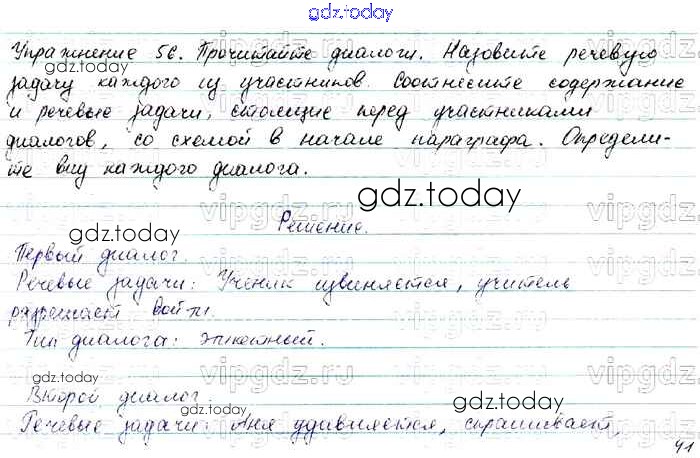 gdz.today
Упражнение 56. Прочитайте диалоги. Назовите речевую
задачу каждого из участников. Соотнесите содержание
и речевые задачи, стоящие перед участниками
диалогов, со схемой в начале параграфа. Определи-
те вид каждого диалога.
gdz.today
gdz.today
Решение.
Первый диалог.
Речевые задачи: Ученик извиняется, учитель
разрешает войти.
Тип диалога: этикетный.
gdz.today
gdz.today
Второй диалог.
Речевые задачи: Аня удивляется, спрашивает
41
vipgdz.ru
vipgdz.ru
vipgdz.ru
vipgdz.ru